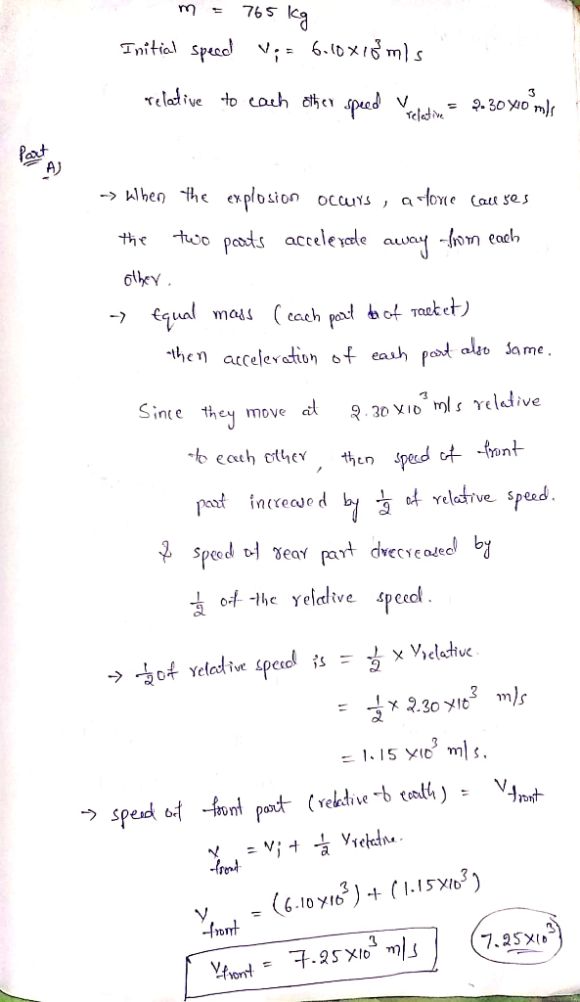 m = 765 kg
Initial speed Vi = 6.10×10³ m/s
relative to each other speed Vrelative = 2.30×10³ m/s
Part A)
→ When the explosion occurs, a force causes
the two parts accelerate away from each
other.
→ Equal mass (each part of racket)
then acceleration of each part also same.
Since they move at 2.30×10³ m/s relative
to each other, then speed of front
part increased by 1/2 of relative speed.
& speed of rear part drecreased by
1/2 of the relative speed.
→ 1/2 of relative speed is = 1/2 × Vrelative.
= 1/2 × 2.30×10³ m/s
= 1.15×10³ m/s.
→ speed of front part (relative to earth) = Vfront
Vfront = Vi + 1/2 Vrelative.
Vfront = (6.10×10³) + (1.15×10³)
Vfront = 7.25×10³ m/s
7.25×10³